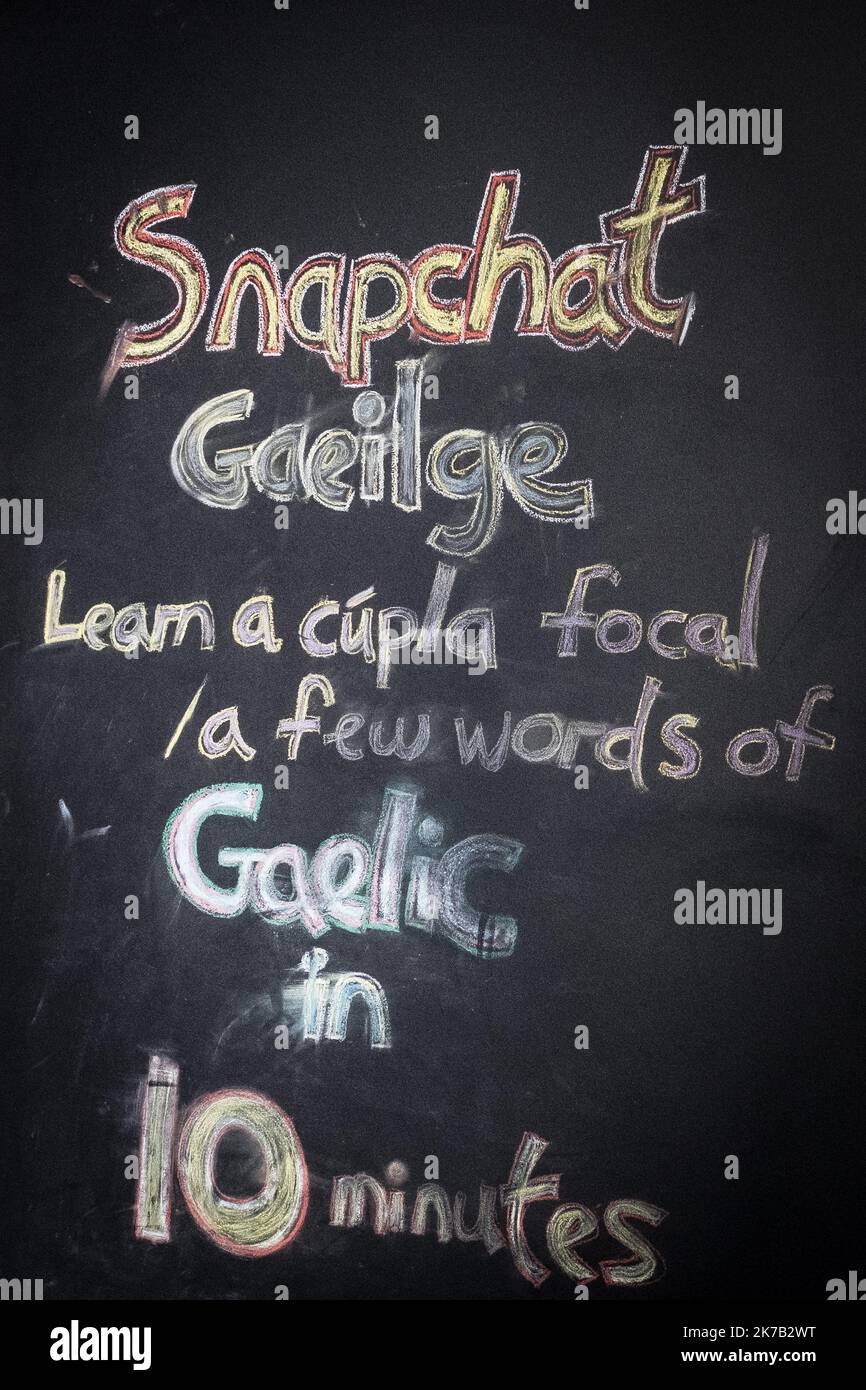 Snapchat
Gaeilge
Learn a cúpla focal
/a few words of
Gaelic
in
10 minutes
alamy
alamy
Image ID: 2K7B2WT
www.alamy.com